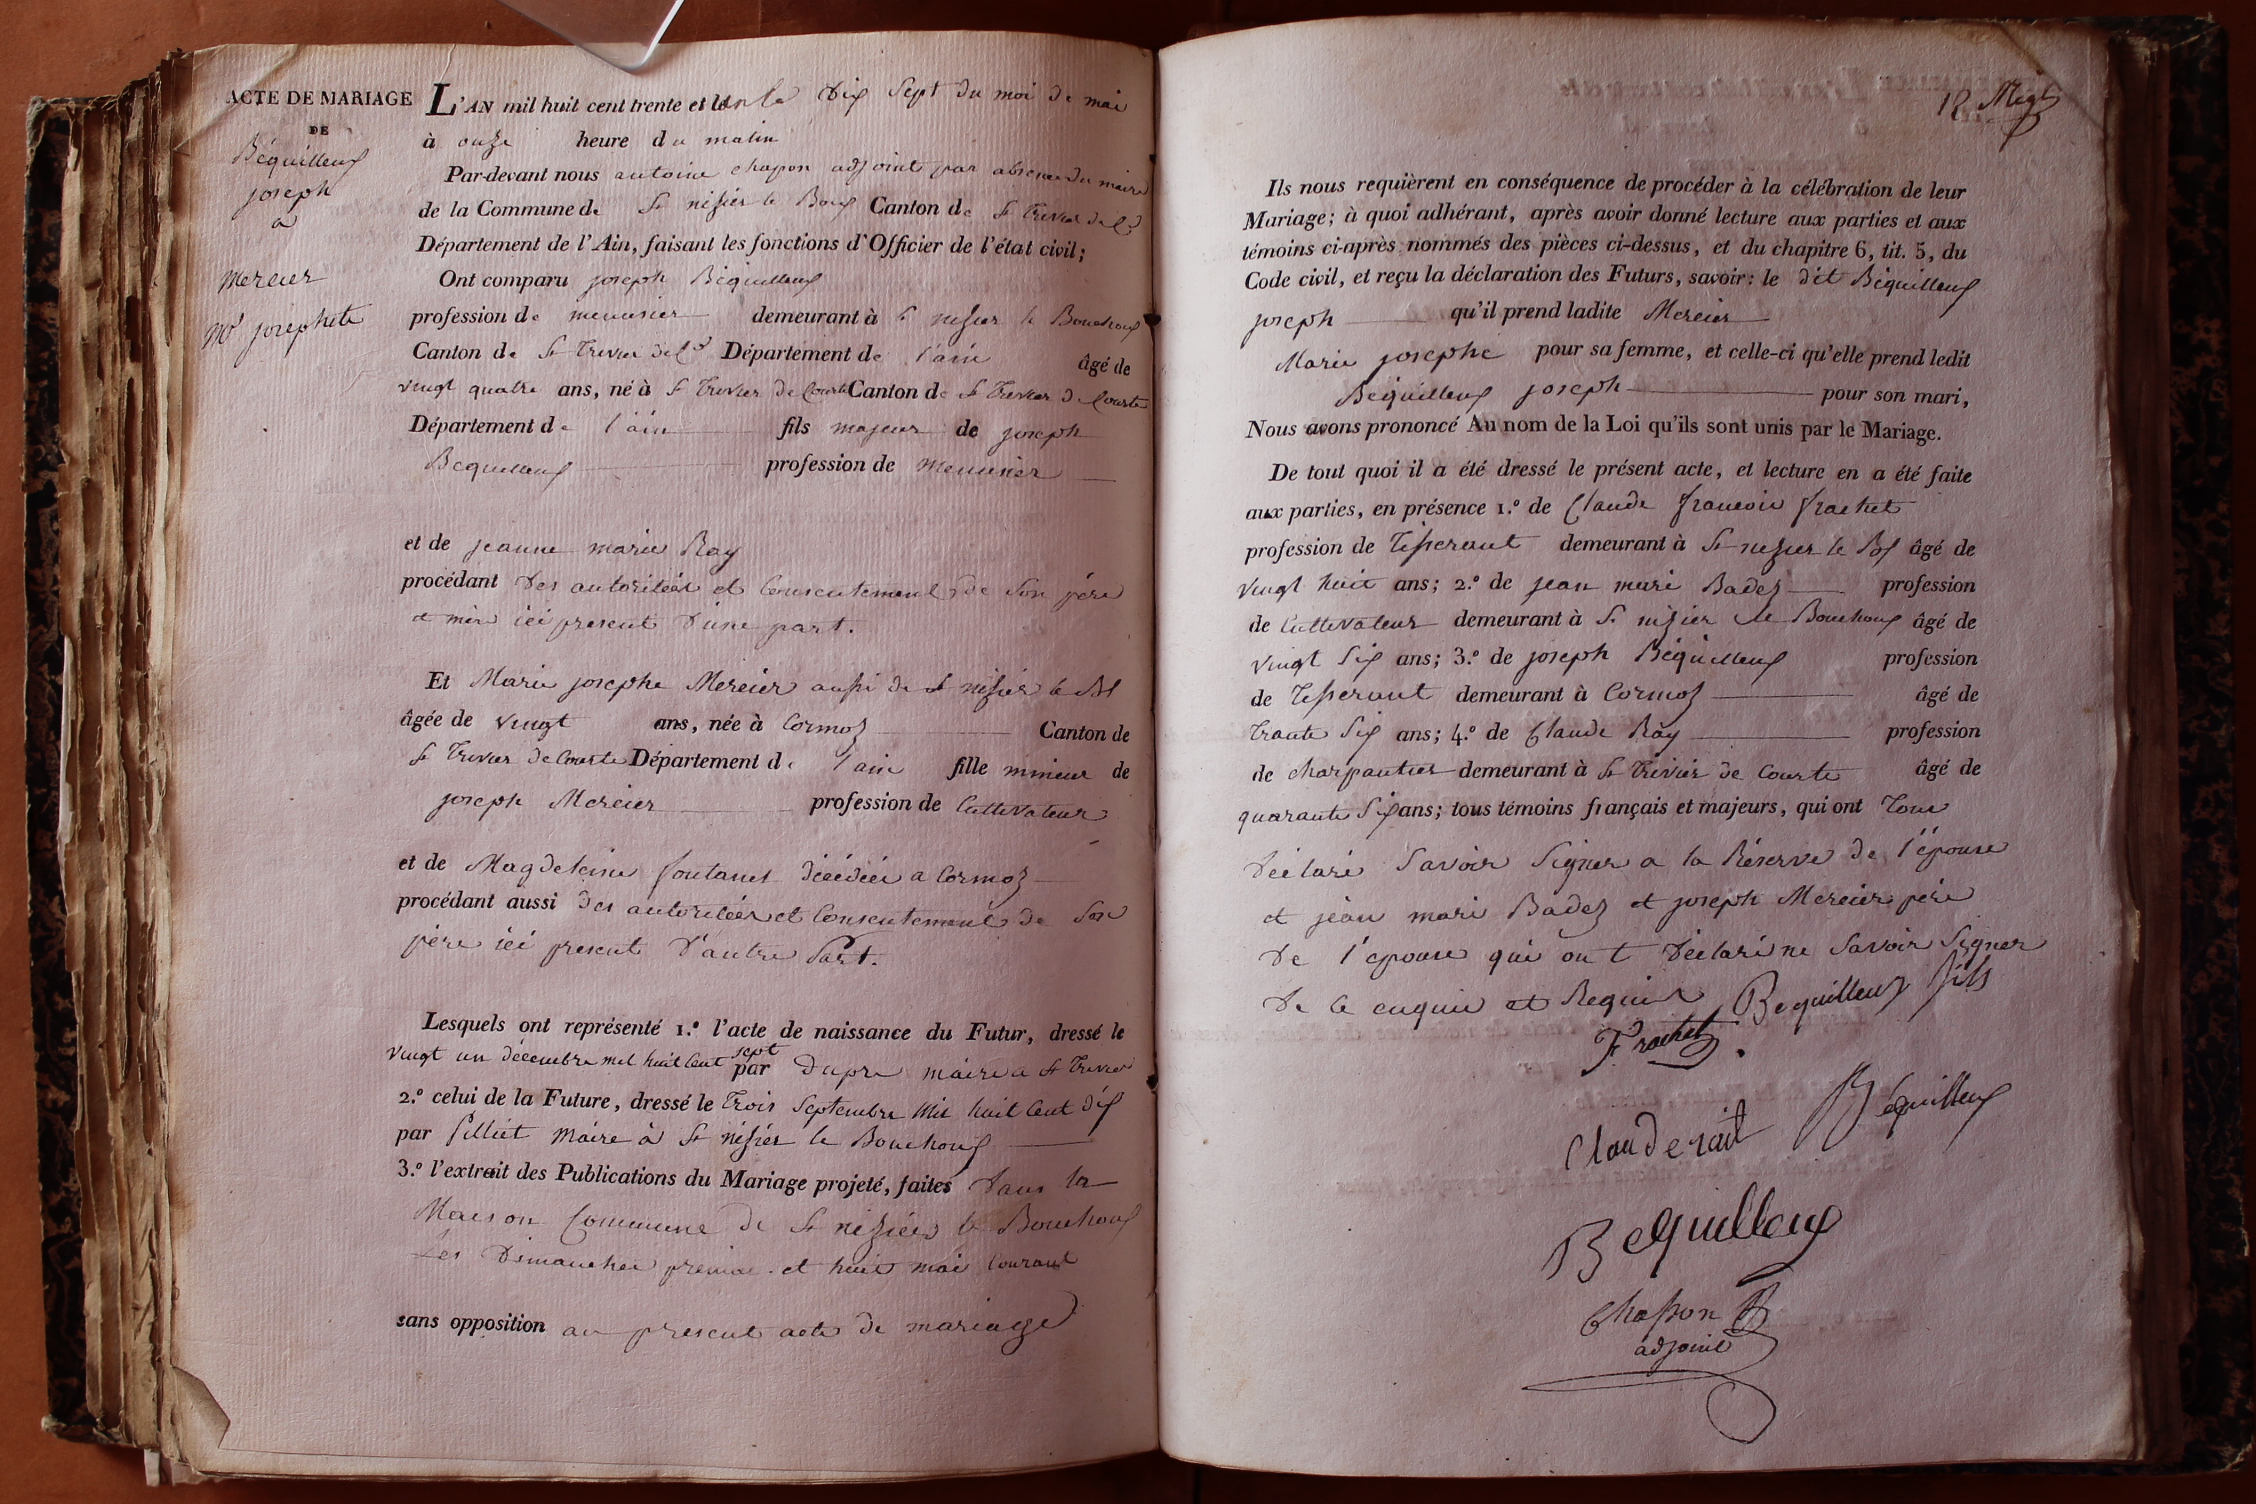 ACTE DE MARIAGE
DE
Béquilleux
joseph
a
Mercier
Me josephete
L'AN mil huit cent trente et un le Dix Sept du moi de mai
à onze heure du matin
Par-devant nous antoine chapon adjoint par absence du maire
de la Commune de St nisier le Boux Canton de St Trivier de Cte
Département de l'Ain, faisant les fonctions d'Officier de l'état civil;
Ont comparu joseph Béquilleux
profession de menusier demeurant à St nisier le Bouchoux
Canton de St Trivier de Cte Département de l'ain âgé de
vingt quatre ans, né à St Trivier de Courte Canton de St Trivier de Courte
Département de l'ain fils majeur de joseph
Bequilleux profession de menusier
et de jeanne marie Ray
procédant Des autoritéés et Consentement de Son pére
et mére ici present D'une part.
Et Marie josephe Mercier aussi de St nisier le Bx
âgée de vingt ans, née à Cormoz Canton de
St Trivier de Courte Département de l'ain fille mineur de
joseph Mercier profession de Cultivateur
et de Magdeleine fontanet décédéé a Cormoz
procédant aussi des autoritéés et Consentement de Son
pére ici present D'autre Part.
Lesquels ont représenté 1.º l'acte de naissance du Futur, dressé le
vingt un décembre mil huit Cent sept par Dupre maire a St Trivier
2.º celui de la Future, dressé le trois Septembre Mil huit Cent dix
par Pilliet Maire à St nisier le Bouchoux
3.º l'extrait des Publications du Mariage projeté, faites Dans la
Maison Commune de St niziér le Bouchoux
Les Dimanches premier et huit mai Courant
sans opposition au present acte de mariage
18 Migt
Ils nous requièrent en conséquence de procéder à la célébration de leur
Mariage; à quoi adhérant, après avoir donné lecture aux parties et aux
témoins ci-après nommés des pièces ci-dessus, et du chapitre 6, tit. 5, du
Code civil, et reçu la déclaration des Futurs, savoir: le dit Béquilleux
joseph qu'il prend ladite Mercier
Marie josephe pour sa femme, et celle-ci qu'elle prend ledit
Béquilleux joseph pour son mari,
Nous avons prononcé Au nom de la Loi qu'ils sont unis par le Mariage.
De tout quoi il a été dressé le présent acte, et lecture en a été faite
aux parties, en présence 1.º de Claude francois frachet
profession de Tisserant demeurant à St nizier le Bx âgé de
vingt huit ans; 2.º de jean marie Badez profession
de Cultivateur demeurant à St nizier le Bouchoux âgé de
vingt Six ans; 3.º de joseph Béquilleux profession
de Tisserant demeurant à Cormoz âgé de
trante Six ans; 4.º de Claude Ray profession
de charpantier demeurant à St Trivier de Courte âgé de
quarante Six ans; tous témoins français et majeurs, qui ont Tous
Déclaré Savoir Signer a la Réserve de l'épouse
et jéan mari Badez et joseph Mercier pére
De l'épouse qui ont Déclaré ne Savoir Signer
De ce enquie et Requit
Bequilleux fils
Frachet
Béquilleux
Claude rait
Bequilleux
Chapon
adjoint